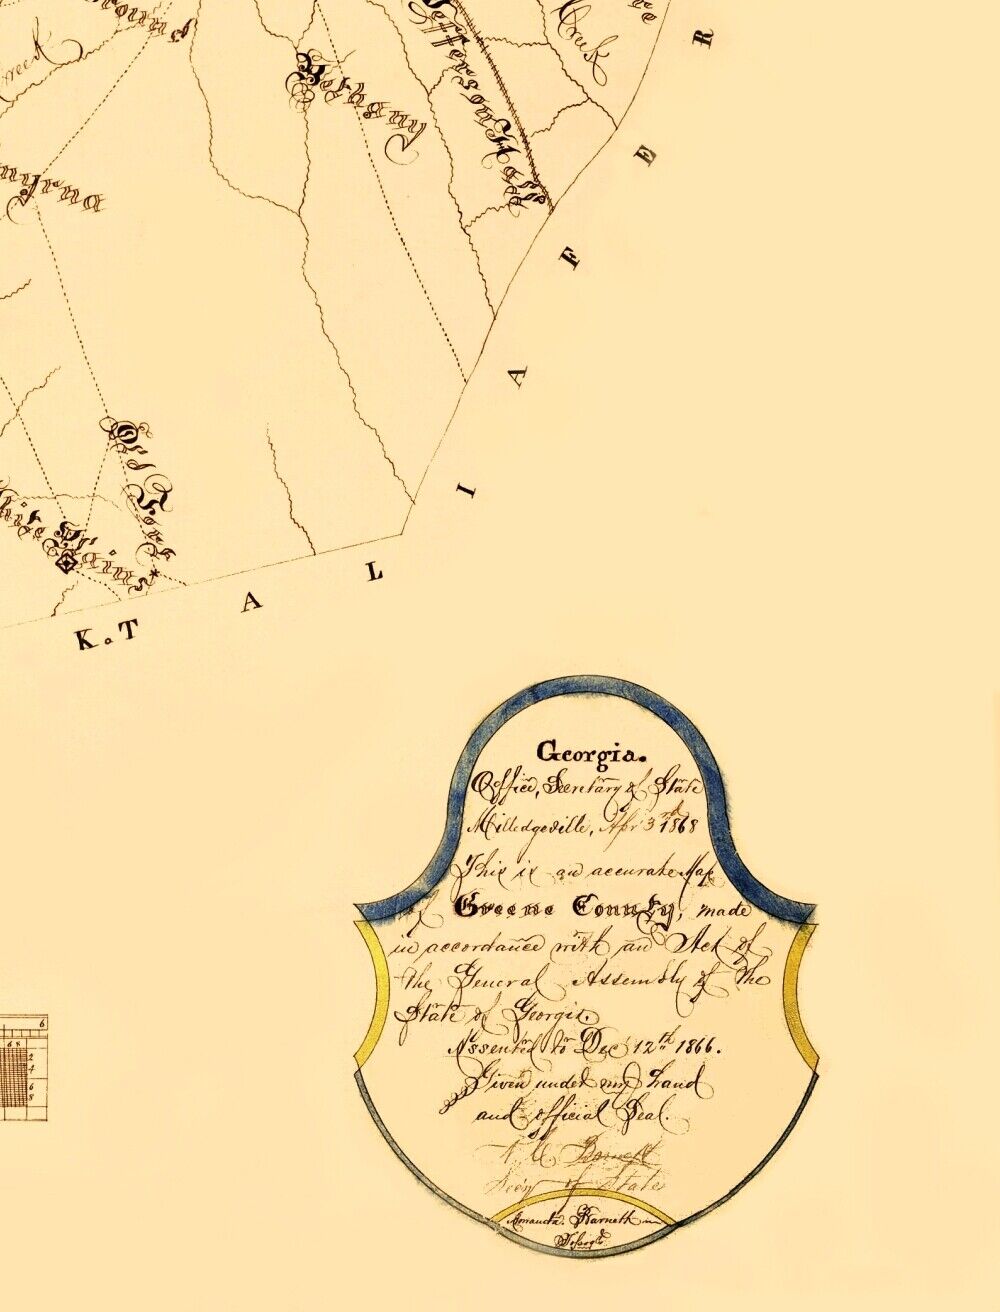 Creek
Bethany
Jefferson Hall
Creek
Old Fort
White Plains
R
E
F
A
I
L
A
K. T
6
6 8
2
4
6
8
Georgia.
Office, Secretary of State
Milledgeville, Apr 3rd 1868
This is an accurate Map
of Greene County, made
in accordance with an Act of
the General Assembly of the
State of Georgia.
Assented to Dec 12th 1866.
Given under my hand
and official Seal.
N C Barnett
Secy of State
Amanda. Barnett